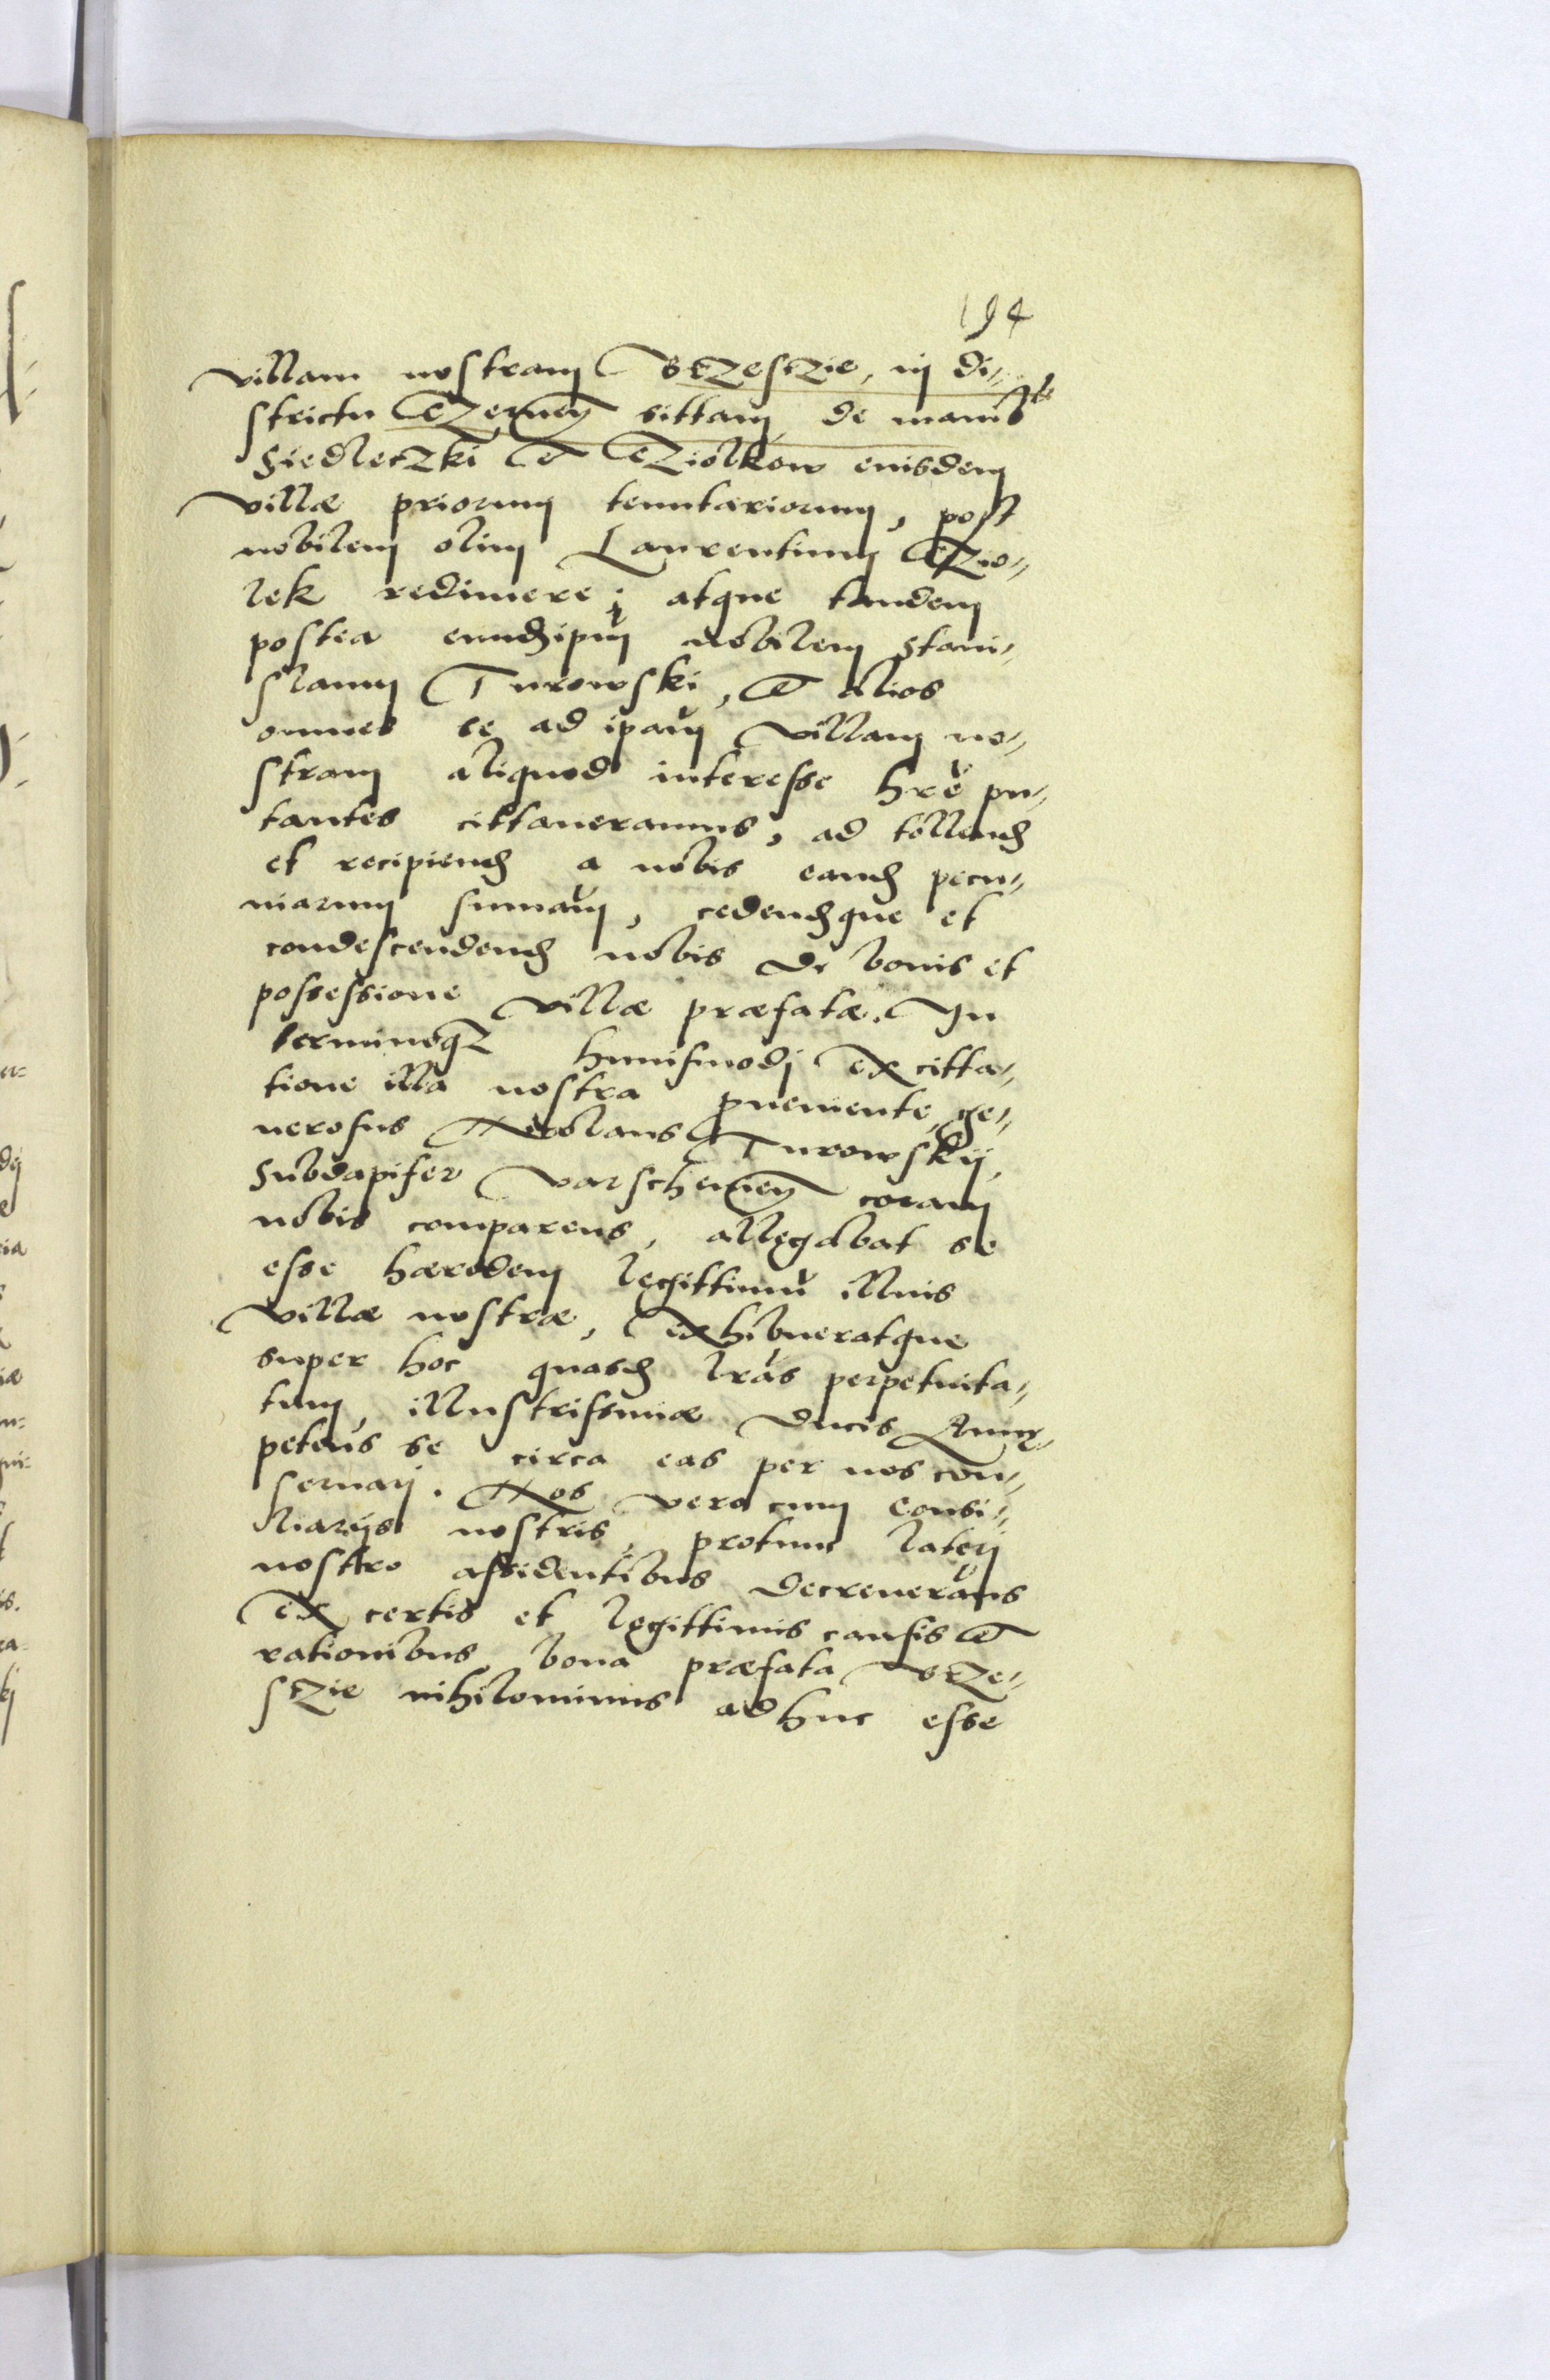 194
villam nostram Vszesczie, in di⸗
strictu Czernen̄ sittam, de manibus
Siedleczki et Cziolkow eiusdem
villæ priorum tenutariorum, post
nobilem olim Laurentium Czio⸗
lek redimere; atque tandem
postea eundꝫ ipm̄ nobilem Stani⸗
slaum Turowski, et alios
omnes se ad ipam̄ villam no⸗
stram aliquod interesse hrē pu⸗
tantes cittaueramus, ad tollendꝫ
et recipiendꝫ a nobis eandꝫ pecu⸗
niarum summam̄, cedendꝫque et
condescendendꝫ nobis de bonis et
possessione villæ præfatæ. In
terminoqꝫ huiusmodj ex citta⸗
tione illa nostra ꝓueniente, ge⸗
nerosus Nicolaus Turowskij,
Subdapifer Varschenen̄ coram
nobis comparens, allegabat se
esse hæredem legittimū illius
villæ nostræ, exhibueratque
super hoc quasdꝫ lrās perpetuita⸗
tum, illustrissimæ Ducis Annę
petens se circa eas per nos con⸗
seruarj. Nos vero cum Consi⸗
liarijs nostris, protunc laterj
nostro assidentibus decreuerams
ex certis et legittimis causis et
rationibus, bona præfata Vsze⸗
sczie nihilominus adhuc esse